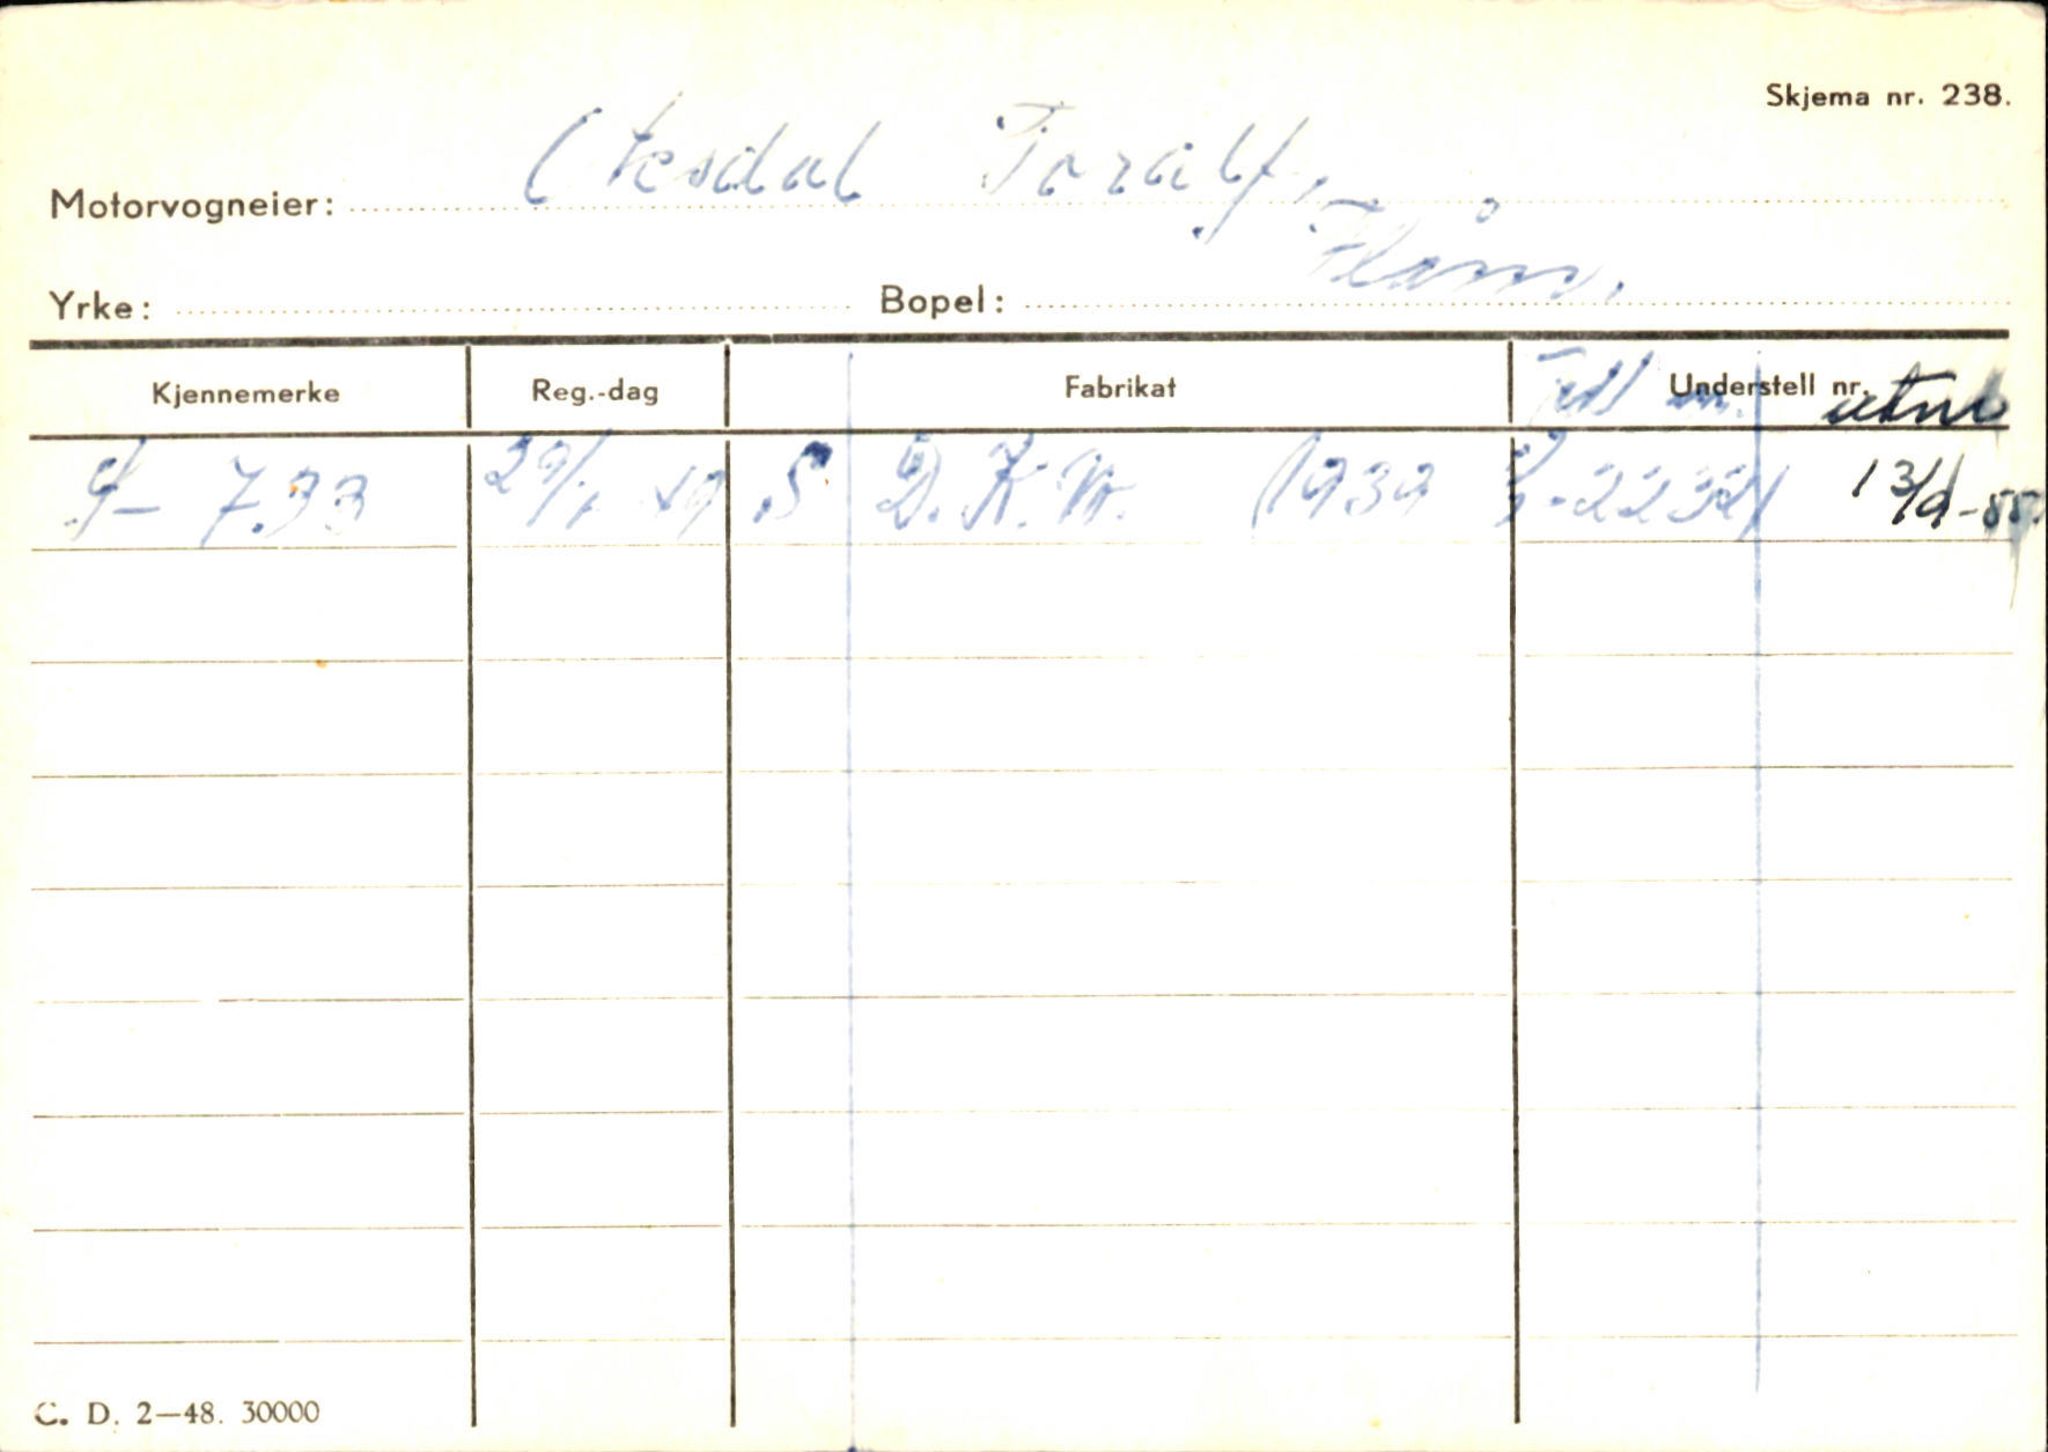 Skjema nr. 238.
Motorvogneier: Toralf,
Flåm.
Yrke: Bopel:
Kjennemerke Reg.-dag Fabrikat Tell nr. Understell nr.
S- 7333 29/1 49 S D.K.W. (1939 13/9-55.
C. D. 2—48. 30000